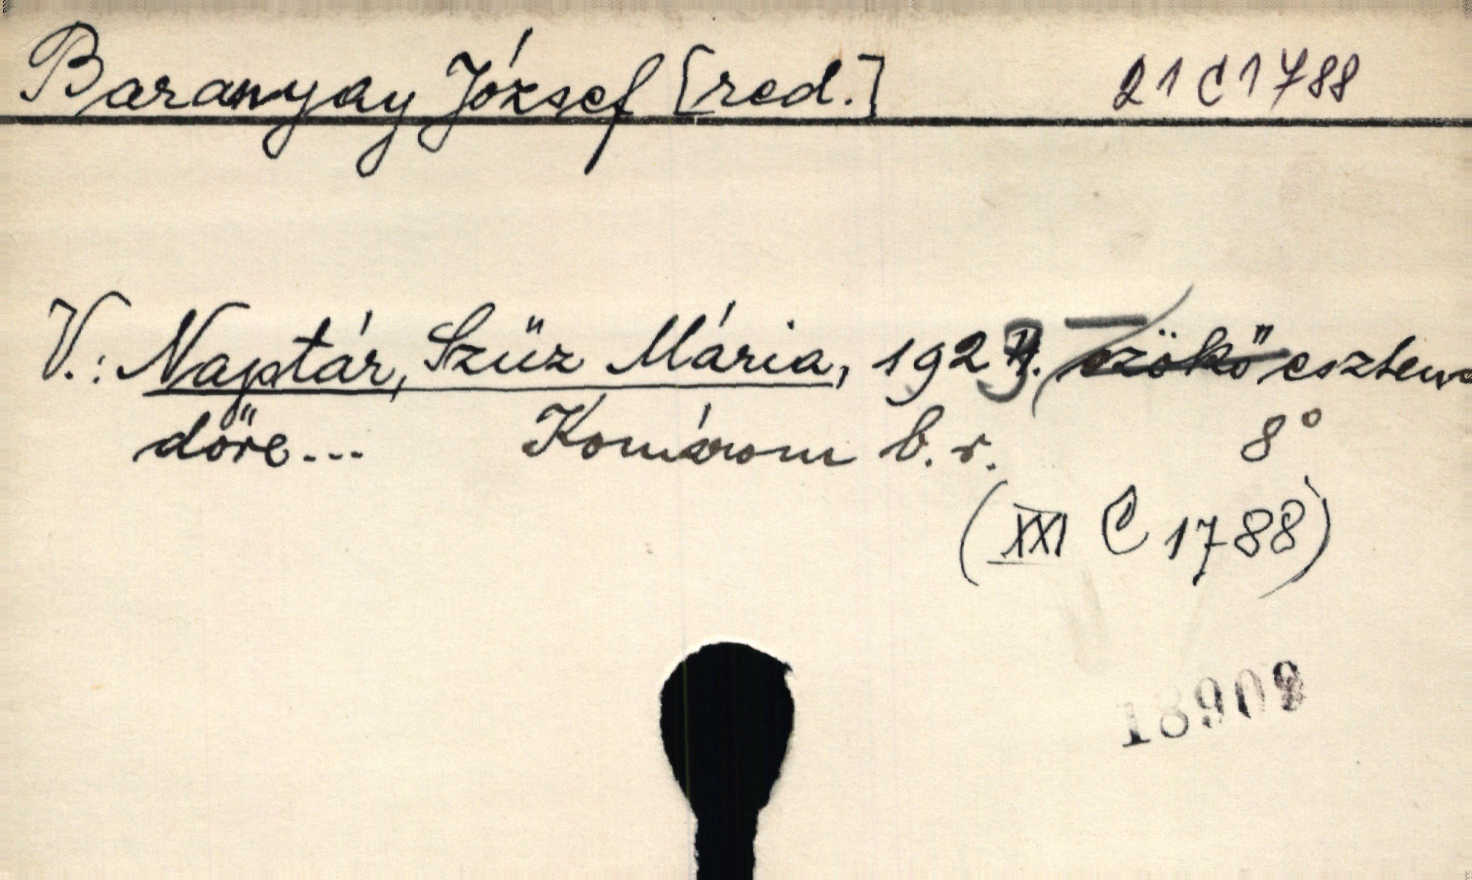 Baranyay József [red.] 21 C 1788
V.: Naptár, Szüz Mária, 1923. szökő eszten-
dőre... Komárom b. r. 8°
(XXI C 1788)
18909